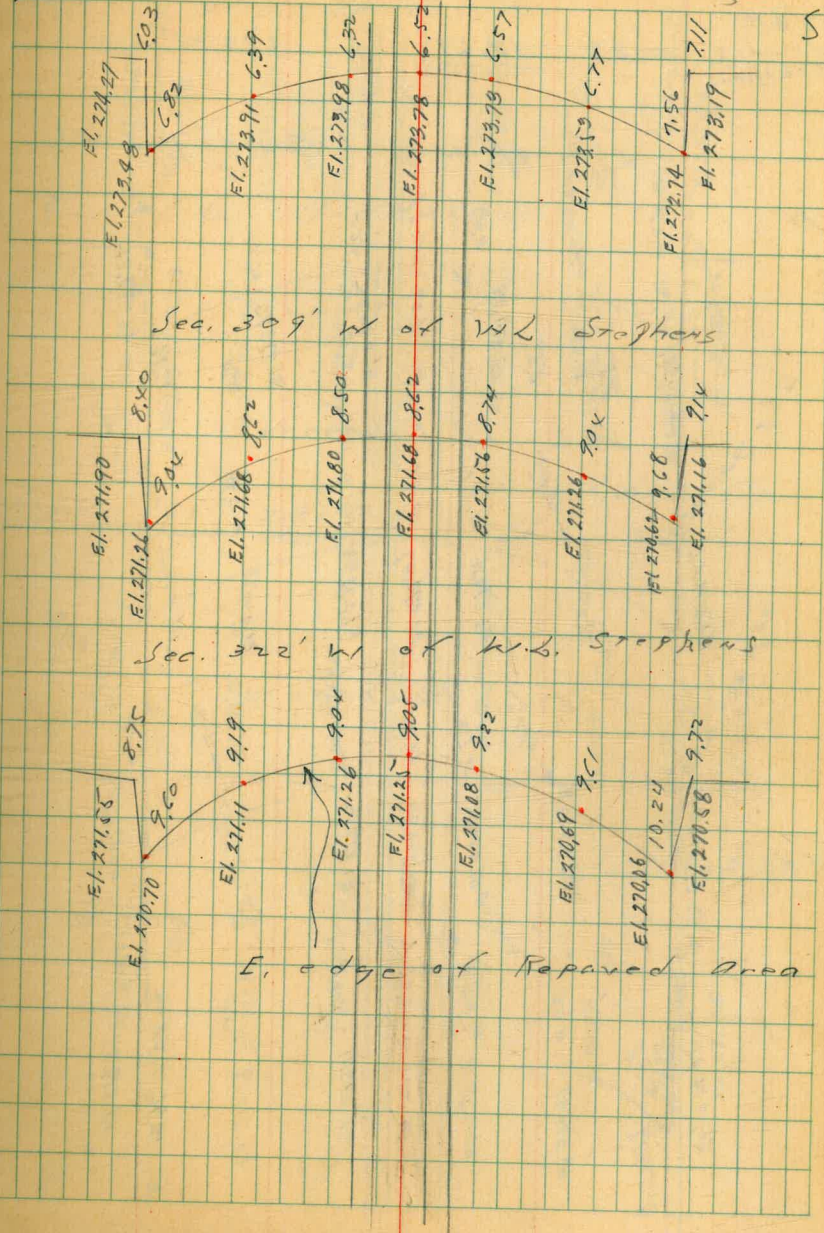 5
El. 274.27 6.03
El. 273.48 6.82
El. 273.91 6.39
El. 273.98 6.32
El. 273.78 6.52
El. 273.73 6.57
El. 273.53 6.77
El. 272.74 7.56
El. 273.19 7.11
Sec. 309' W of WL Stephens
El. 271.90 8.40
El. 271.26 9.04
El. 271.68 8.62
El. 271.80 8.50
El. 271.68 8.62
El. 271.56 8.74
El. 271.26 9.04
El. 270.62 9.68
El. 271.16 9.14
Sec. 322' W of W.L. Stephens
El. 271.55 8.75
El. 270.70 9.60
El. 271.11 9.19
El. 271.26 9.04
El. 271.25 9.05
El. 271.08 9.22
El. 270.69 9.61
El. 270.06 10.24
El. 270.58 9.72
E. edge of Repaved Area